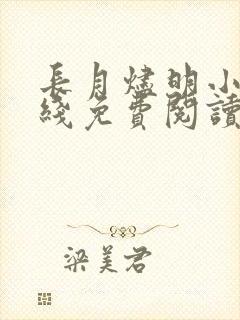 長月燼明小
綫免費閱讀
梁美君